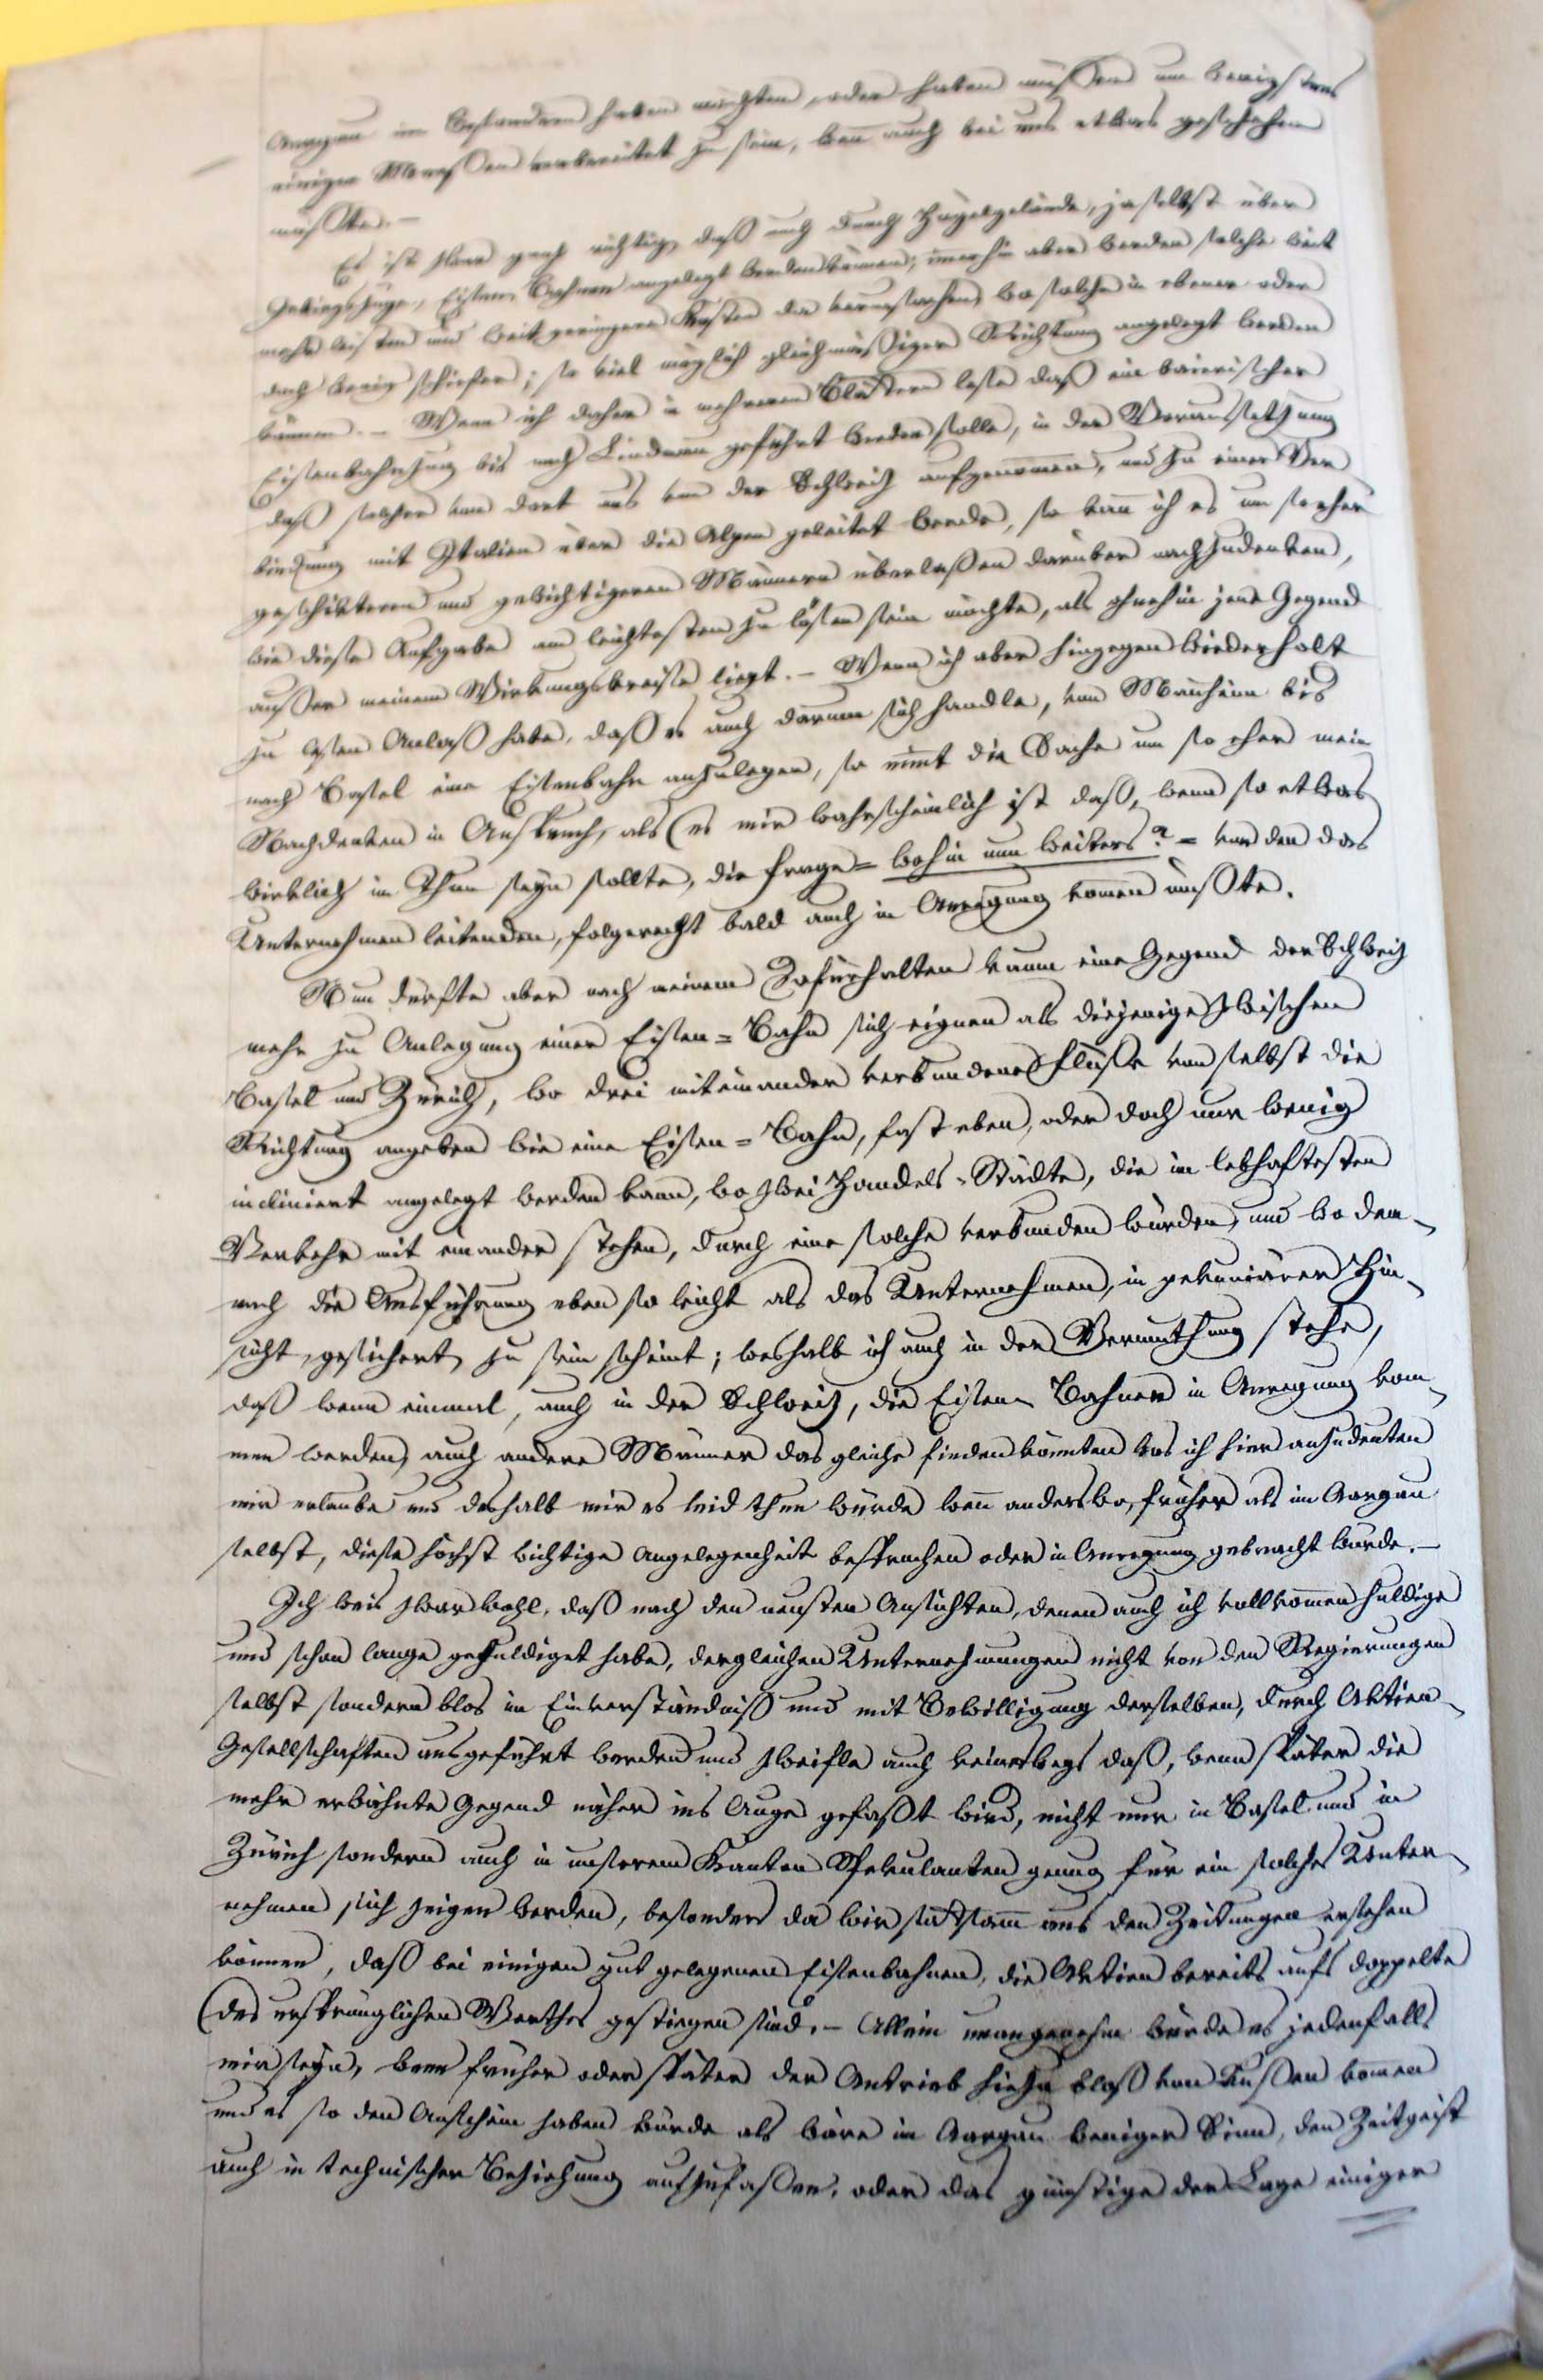 Aargau im besonderen haben möchten, oder haben müssen um wenigstens
einiger Massen vorbereitet zu sein, wenn auch bei uns etwas geschehen
müsste. –
Es ist zwar ganz richtig, daß auch durch Hügelgelände, ja selbst über
Gebirgszüge, Eisen-Bahnen angelegt werden können; immerhin aber werden solche weit
mehr leisten und weit geringere Kosten da verursachen, wo solche in ebener oder
doch wenig schiefer, so viel möglich gleichmäßiger Richtung angelegt werden
können. – Wenn ich daher in mehreren Blättern lese daß ein baierischer
Eisenbahnzug bis nach Lindau geführt werden solle, in der Voraussetzung
daß solcher von dort aus von der Schweiz aufgenommen, und zu einer Ver
bindung mit Italien über die Alpen geleitet werde, so kann ich es um so eher
geschikteren und gewichtigeren Männern überlassen darüber nachzudenken,
wie diese Aufgabe am leichtesten zu lösen sein möchte, als ohnehin jene Gegend
außer meinem Wirkungskreise liegt. – Wenn ich aber hingegen wiederholt
zu lesen Anlaß habe, daß es auch darum sich handle, von Manheim bis
nach Basel eine Eisenbahn anzulegen, so nimt die Sache um so eher mein
Nachdenken in Anspruch, als es mir wahrscheinlich ist daß, wenn so etwas
wirklich im Thun seyn sollte, die Frage = wohin nun weiters? = von den das
Unternehmen leitenden, folgerecht bald auch in Anregung komen müßte.
Nun dürfte aber nach meinem Dafürhalten kaum eine Gegend der Schweiz
mehr zu Anlegung einer Eisen=Bahn sich eignen als diejenige zwischen
Basel und Zürich, wo drei miteinander verbundene Flüsse von selbst die
Richtung angeben wie eine Eisen=Bahn, fast eben, oder doch nur wenig
incliniert angelegt werden kann, wo zwei Handels-Städte, die im lebhaftesten
Verkehr mit einander stehen, durch eine solche verbunden würden, und wo dem-
nach die Ausführung eben so leicht als das Unternehmen, in pekuniärer Hin-
sicht, gesichert zu sein scheint; weshalb ich auch in der Vermuthung stehe,
daß wenn einmal, auch in der Schweiz, die Eisen-Bahnen in Anregung kom-
men werden, auch andere Männer das gleiche finden könnten was ich hier anzudeuten
mir erlaube und deshalb mir es leid thun würde wenn anderswo, früher als im Aargau
selbst, diese höchst wichtige Angelegenheit besprochen oder in Anregung gebracht wurde. –
Ich weis zwar wohl, daß nach den neusten Ansichten, denen auch ich vollkommen huldige
und schon lange gehuldiget habe, dergleichen Unternehmungen nicht von den Regierungen
selbst sondern blos im Einverständniß und mit Bewilligung derselben, durch Aktien-
Gesellschaften ausgeführt werden und zweifle auch keineswegs daß, wenn später die
mehr erwähnte Gegend näher ins Auge gefaßt wird, nicht nur in Basel und in
Zürich sondern auch in unserem Kanton Spekulanten genug für ein solches Unter-
nehmen sich zeigen werden, besonders da wir sattsam aus den Zeitungen ersehen
können, daß bei einigen gut gelegenen Eisenbahnen, die Aktien bereits aufs doppelte
des ursprünglichen Werthes gestiegen sind. – Allein unangenehm würde es jedenfalls
mir seyn, wenn früher oder später der Antrieb hiezu blos von Außen komen
und es so den Anschein haben würde als wäre im Aargau weniger Sinn, den Zeitgeist
auch in technischer Beziehung aufzufassen, oder das günstige der Lage einiger